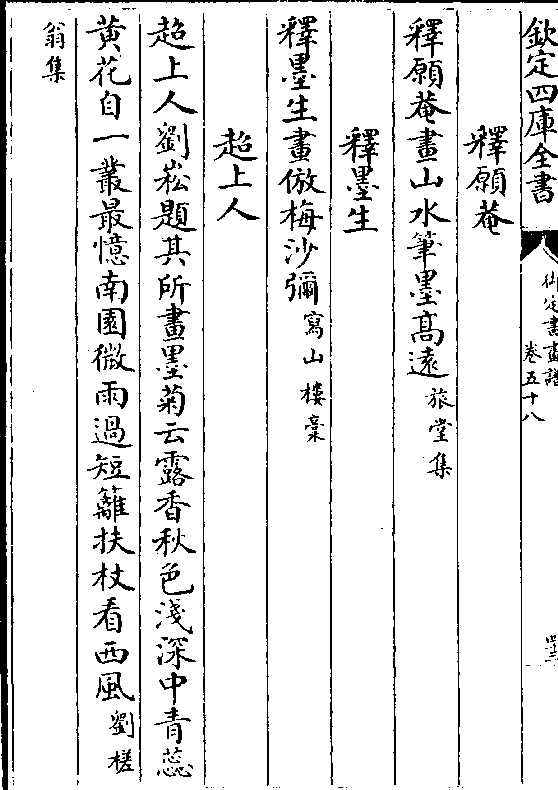 欽定四庫全書
御定書畫譜
卷五十八
四三
釋願菴
釋願菴畫山水筆墨髙逺旅堂集
釋墨生
釋墨生畫倣梅沙彌寫山樓稾
超上人
超上人劉崧題其所畫墨菊云露香秋色淺深中青蕊
黄花自一叢最憶南園微雨過短籬扶杖看西風劉槎
翁集